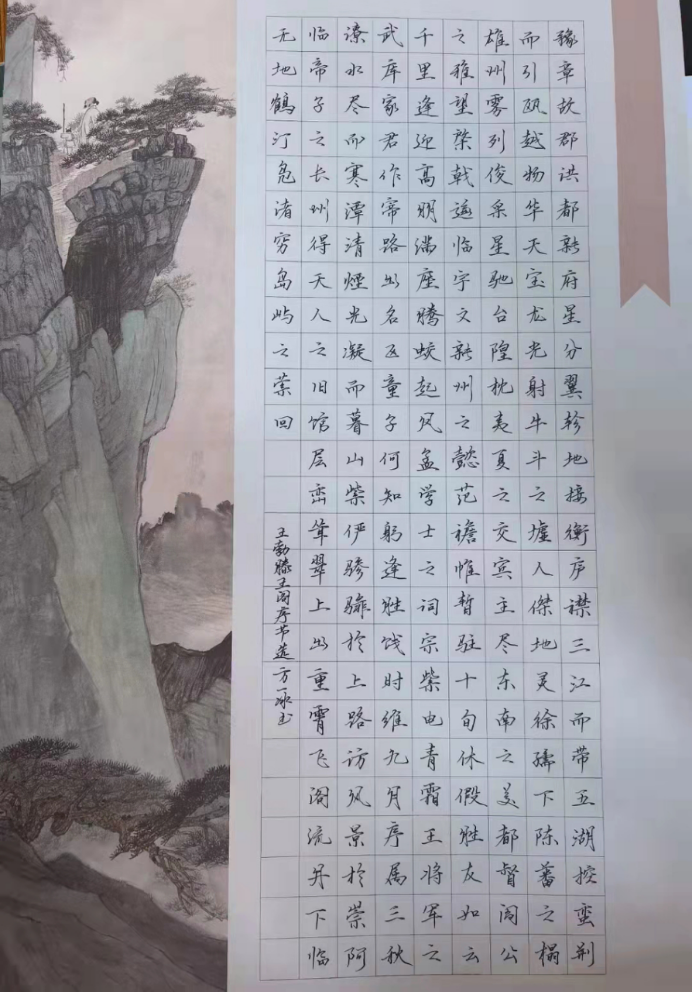 豫章故郡洪都新府星分翼轸地接衡庐襟三江而带五湖控蛮荆
而引瓯越物华天宝龙光射牛斗之墟人傑地灵徐孺下陈蕃之榻
雄州雾列俊采星驰台隍枕夷夏之交宾主尽东南之美都督阎公
之雅望棨戟遥临宇文新州之懿范襜帷暂驻十旬休假胜友如云
千里逢迎高朋满座腾蛟起凤孟学士之词宗紫电青霜王将军之
武库家君作宰路出名区童子何知躬逢胜饯时维九月序属三秋
潦水尽而寒潭清煙光凝而暮山紫俨骖騑於上路访风景於崇阿
临帝子之长州得天人之旧馆层峦耸翠上出重霄飞阁流丹下临
无地鹤汀凫渚穷岛屿之萦回
王勃滕王阁序节选